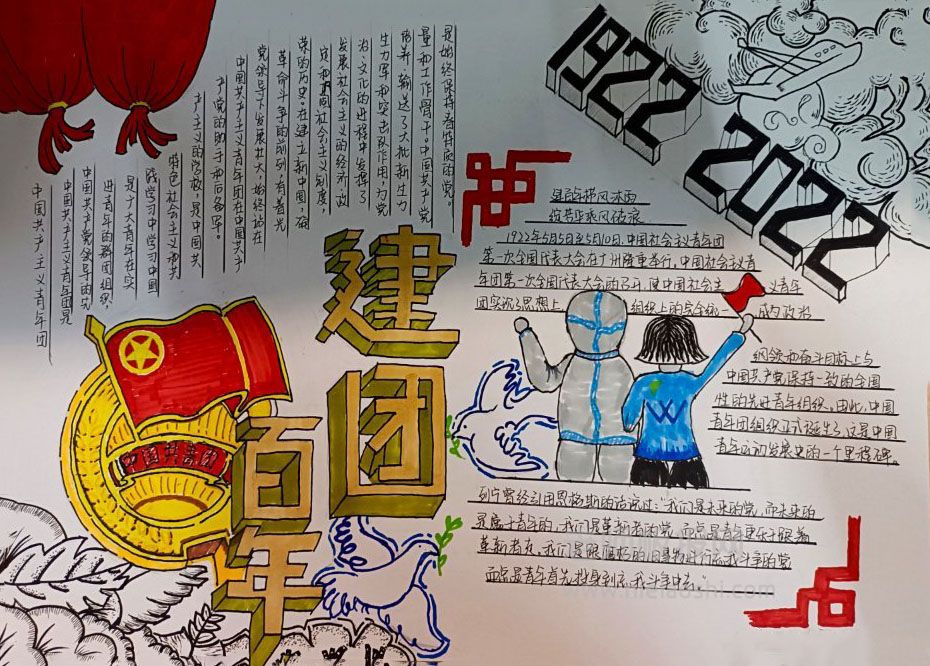 中国共产主义青年团
中国共产主义青年团是
中国共产党领导的先
进青年的群团组织,
是广大青年在实
践学习中学习中国
特色社会主义和共
产主义的学校,是中国共
产党的助手和后备军。
中国共产主义青年团在中国共产
党领导下发展壮大,始终站在
革命斗争的前列,有着光
荣的历史。在建立新中国,确
定和巩固社会主义制度,
发展社会主义的经济、政
治、文化的进程中发挥了
生力军和突击队作用,为党
培养、输送了大批新生力
量和工作骨干。中国共产党
是始终保持着特质的党。
中国共青团
建团
百年
1922
2022
建百年栉风沐雨
1922年5月5日至5月10日,中国社会主义青年团
第一次全国代表大会在广州隆重举行,中国社会主义青
年团第一次全国代表大会的召开,使中国社会主义青年
团实现了思想上 组织上的完全统一 成为政治
纲领和奋斗目标上与
中国共产党保持一致的全国
性的先进青年组织。由此,中国
青年团组织正式诞生了,这是中国
青年运动发展史的一个里程碑。
列宁曾经引用恩格斯的话说过:我们是未来的党,而未来的
是属于青年的,我们是革新者的党,而总是青年更乐于跟着
革新者走,我们是跟腐朽的旧事物进行忘我斗争的党
而总是青年首先投身到忘我斗争中去。